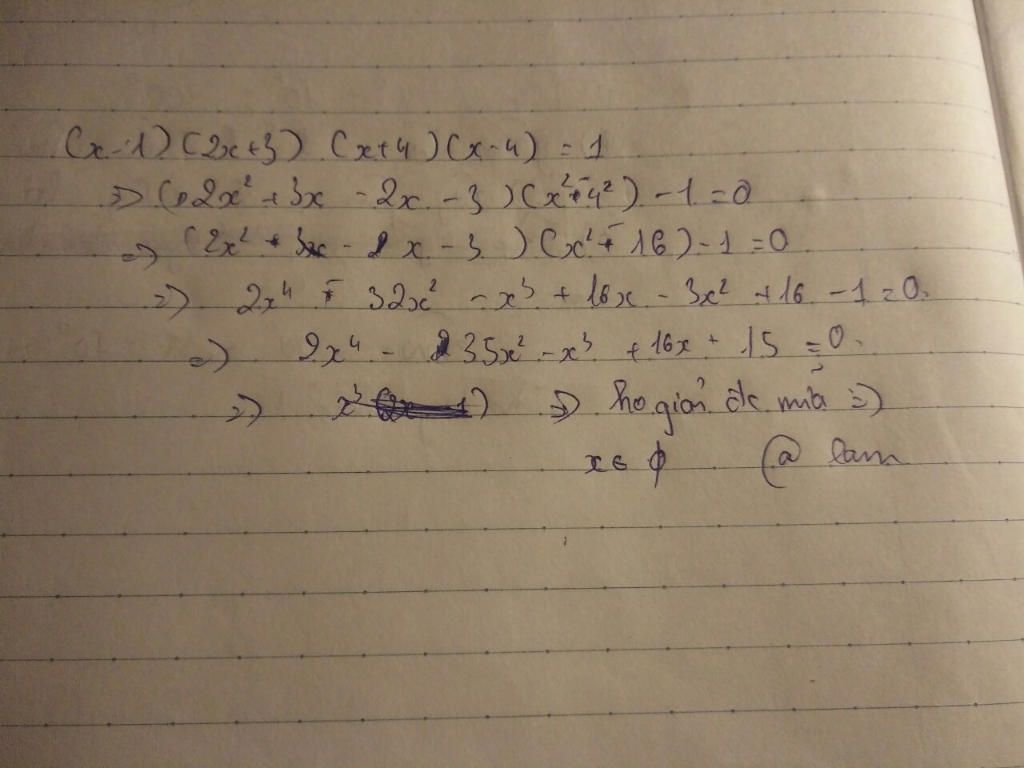 (x-1)(2x+3)(x+4)(x-4) = 1
=> (2x² + 3x - 2x - 3)(x² - 4²) - 1 = 0
=> (2x² + 3x - 2x - 3)(x² - 16) - 1 = 0
=> 2x⁴ - 32x² - x³ + 16x - 3x² + 16 - 1 = 0.
=> 2x⁴ - 35x² - x³ + 16x + 15 = 0.
=> x³ => ko giải đc nữa =>
x ∈ ϕ (@ lam